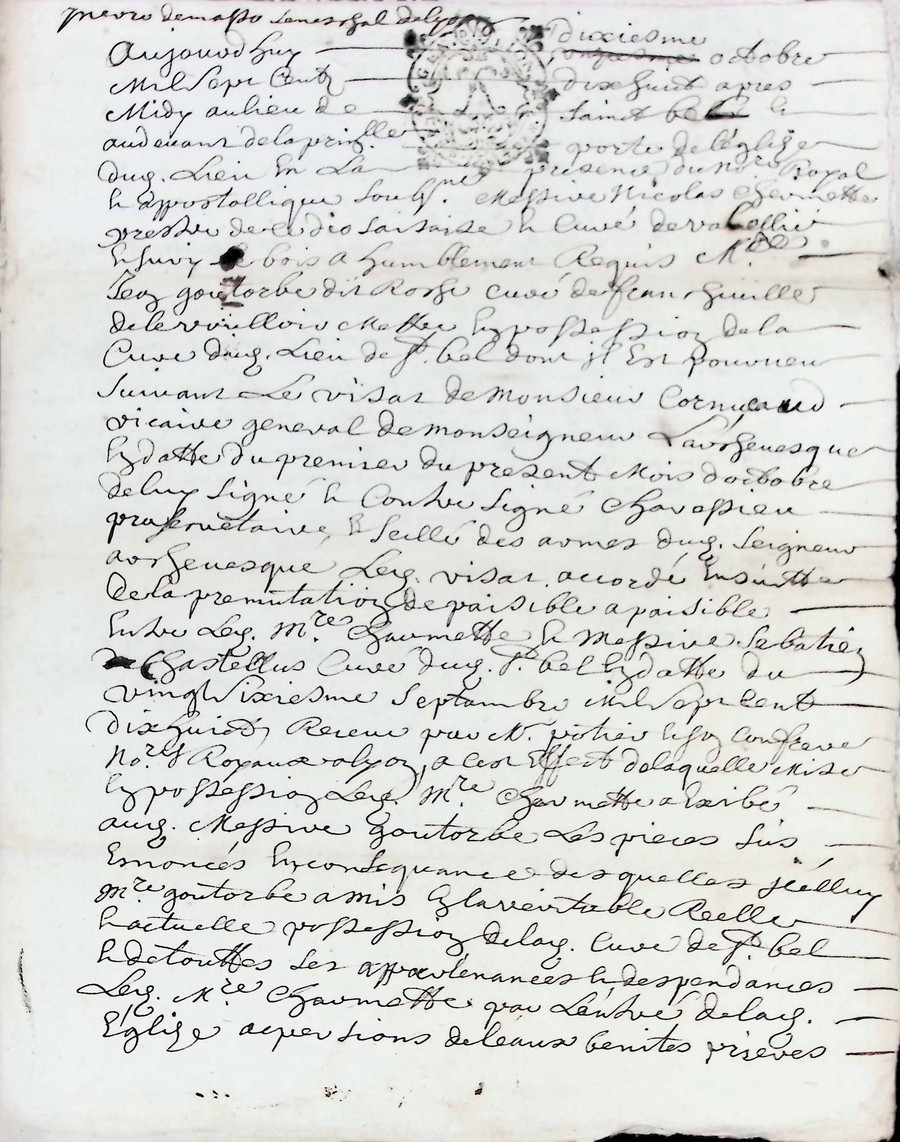 pierre demasso seneschal delyon
Aujourdhuy dixiesme
onziesme octobre
Mil Sept Centz dixhuict apres
Midy au lieu de sainct bel &
audevant de la prin.lle porte de l'églize
dug. Lieu En La presence du No.re Royal
& appostallique soub.né Messire Nicolas Chaumette
prestre de ce dioSaisaise & Curé de
ensury le bois a humblement Requis M.re
Jean goutorbe dit Rosse curé de francheuille
de le vouilloir Mettre en possession de la
Cure dug. Lieu de S.t bel dont jl Est pourueu
suiuant Le visat de Monsieur Cornuaud
vicaire general de Monseigneur L'archeuesque
en datte du premier du present Mois doctobre
de luy signé & Contre signé Chauassieu
prosecretaire, & scellé des armes dug. Seigneur
archeuesque Leg. visat accordé Ensuitte
de la premutation de paisible a paisible
Entre Leg. M.re Chaumette & Messire Sebatien
Chastellus Curé dug. S.t bel en datte du
vingt sixiesme septambre Mil Sept Cent
dixhuict Receue par M.e potier & son Confrere
No.res Royaux a lyon, a cest Effect de laquelle Mise
En possession Leg. M.re Chaumette a Exibé
aug. Messire goutorbe Les pieces sus
Ennoncés En consequance desquelles jcelluy
M.re goutorbe a mis En la veritable Reelle
& actuelle possession de lag. Cure de S.t bel
& de touttes ses appartenances & despendances
Leg. M.re Chaumette par L'entré de lag.
Églize aspersions de leaux benites prieres